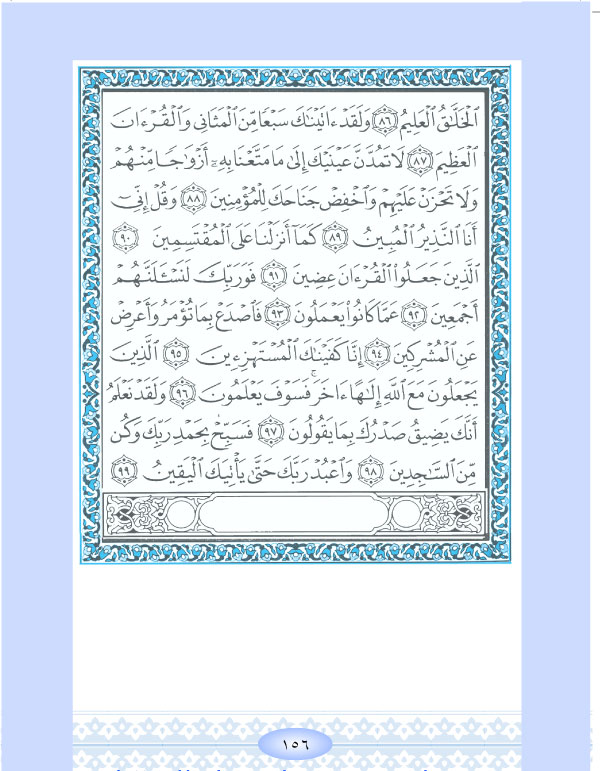 ٱلْخَلَّـٰقُ ٱلْعَلِيمُ ٨٦ وَلَقَدْ ءَاتَيْنَـٰكَ سَبْعًا مِّنَ ٱلْمَثَانِى وَٱلْقُرْءَانَ
ٱلْعَظِيمَ ٨٧ لَا تَمُدَّنَّ عَيْنَيْكَ إِلَىٰ مَا مَتَّعْنَا بِهِۦٓ أَزْوَٰجًا مِّنْهُمْ
وَلَا تَحْزَنْ عَلَيْهِمْ وَٱخْفِضْ جَنَاحَكَ لِلْمُؤْمِنِينَ ٨٨ وَقُلْ إِنِّىٓ
أَنَا ٱلنَّذِيرُ ٱلْمُبِينُ ٨٩ كَمَآ أَنزَلْنَا عَلَى ٱلْمُقْتَسِمِينَ ٩٠
ٱلَّذِينَ جَعَلُوا۟ ٱلْقُرْءَانَ عِضِينَ ٩١ فَوَرَبِّكَ لَنَسْـَٔلَنَّهُمْ
أَجْمَعِينَ ٩٢ عَمَّا كَانُوا۟ يَعْمَلُونَ ٩٣ فَٱصْدَعْ بِمَا تُؤْمَرُ وَأَعْرِضْ
عَنِ ٱلْمُشْرِكِينَ ٩٤ إِنَّا كَفَيْنَـٰكَ ٱلْمُسْتَهْزِءِينَ ٩٥ ٱلَّذِينَ
يَجْعَلُونَ مَعَ ٱللَّهِ إِلَـٰهًا ءَاخَرَ ۚ فَسَوْفَ يَعْلَمُونَ ٩٦ وَلَقَدْ نَعْلَمُ
أَنَّكَ يَضِيقُ صَدْرُكَ بِمَا يَقُولُونَ ٩٧ فَسَبِّحْ بِحَمْدِ رَبِّكَ وَكُن
مِّنَ ٱلسَّـٰجِدِينَ ٩٨ وَٱعْبُدْ رَبَّكَ حَتَّىٰ يَأْتِيَكَ ٱلْيَقِينُ ٩٩
١٥٦